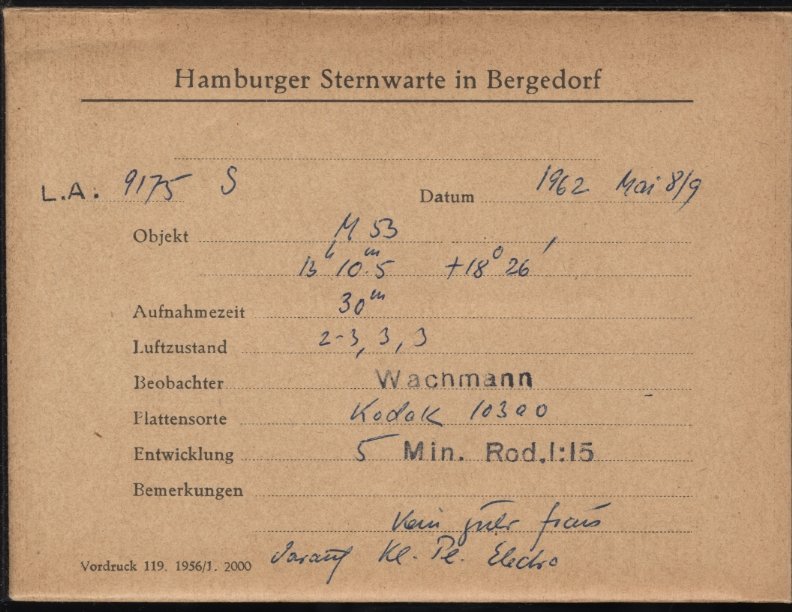 Hamburger Sternwarte in Bergedorf
L.A. 9175 S Datum 1962 Mai 8/9
Objekt M 53
13h 10m.5 +18° 26'
Aufnahmezeit 30m
Luftzustand 2-3, 3, 3
Beobachter Wachmann
Plattensorte Kodak 103a0
Entwicklung 5 Min. Rod.1:15
Bemerkungen
Kein guter
Darauf Kl. Pl. Electra
Vordruck 119. 1956/1. 2000